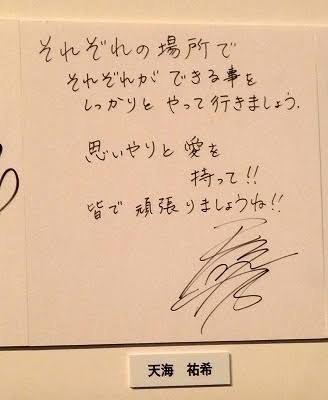 それぞれの場所で
それぞれが できる事を
しっかりと やって行きましょう.
思いやりと 愛を
持って!!
皆で 頑張りましょうね!!
天海 祐希